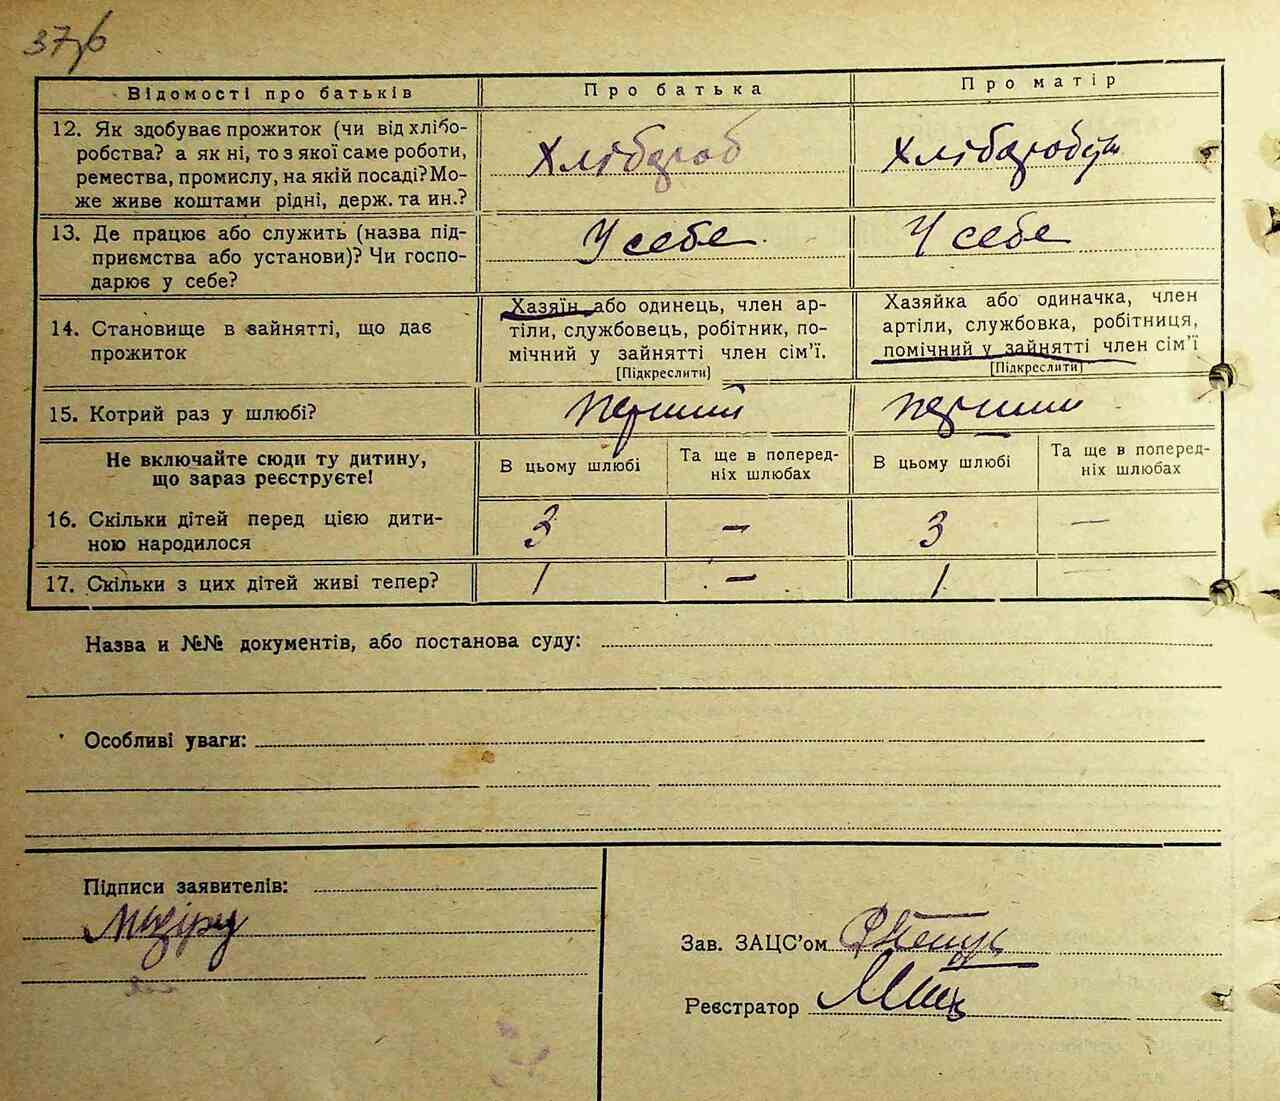 37зб
Відомості про батьків Про батька Про матір
12. Як здобуває прожиток (чи від хлібо-
робства? а як ні, то з якої саме роботи,
ремества, промислу, на якій посаді? Мо-
же живе коштами рідні, держ. та ин.?
Хлібороб Хлібороб
13. Де працює або служить (назва під-
приємства або установи)? Чи госпо-
дарює у себе?
У себе У себе
14. Становище в зайнятті, що дає
прожиток
Хазяїн або одинець, член ар-
тіли, службовець, робітник, по-
мічний у зайнятті член сім’ї.
[Підкреслити]
Хазяйка або одиначка, член
артіли, службовка, робітниця,
помічний у зайнятті член сім’ї
[Підкреслити]
15. Котрий раз у шлюбі? перший перший
Не включайте сюди ту дитину,
що зараз реєструєте!
В цьому шлюбі
Та ще в поперед-
ніх шлюбах
В цьому шлюбі
Та ще в поперед-
ніх шлюбах
16. Скільки дітей перед цією дити-
ною народилося
3 – 3 –
17. Скільки з цих дітей живі тепер? 1 – 1 –
Назва и №№ документів, або постанова суду:
Особливі уваги:
Підписи заявителів:
Зав. ЗАЦС’ом
Реєстратор